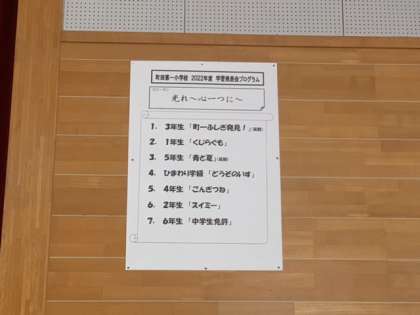 町田第一小学校 2022年度 学習発表会プログラム
光れ～心一つに～
1. 3年生 「町一ふしぎ発見！」
2. 1年生 「くじらぐも」
3. 5年生 「青と夏」
4. ひまわり学級 「どうぞのいす」
5. 4年生 「ごんぎつね」
6. 2年生 「スイミー」
7. 6年生 「中学生免許」